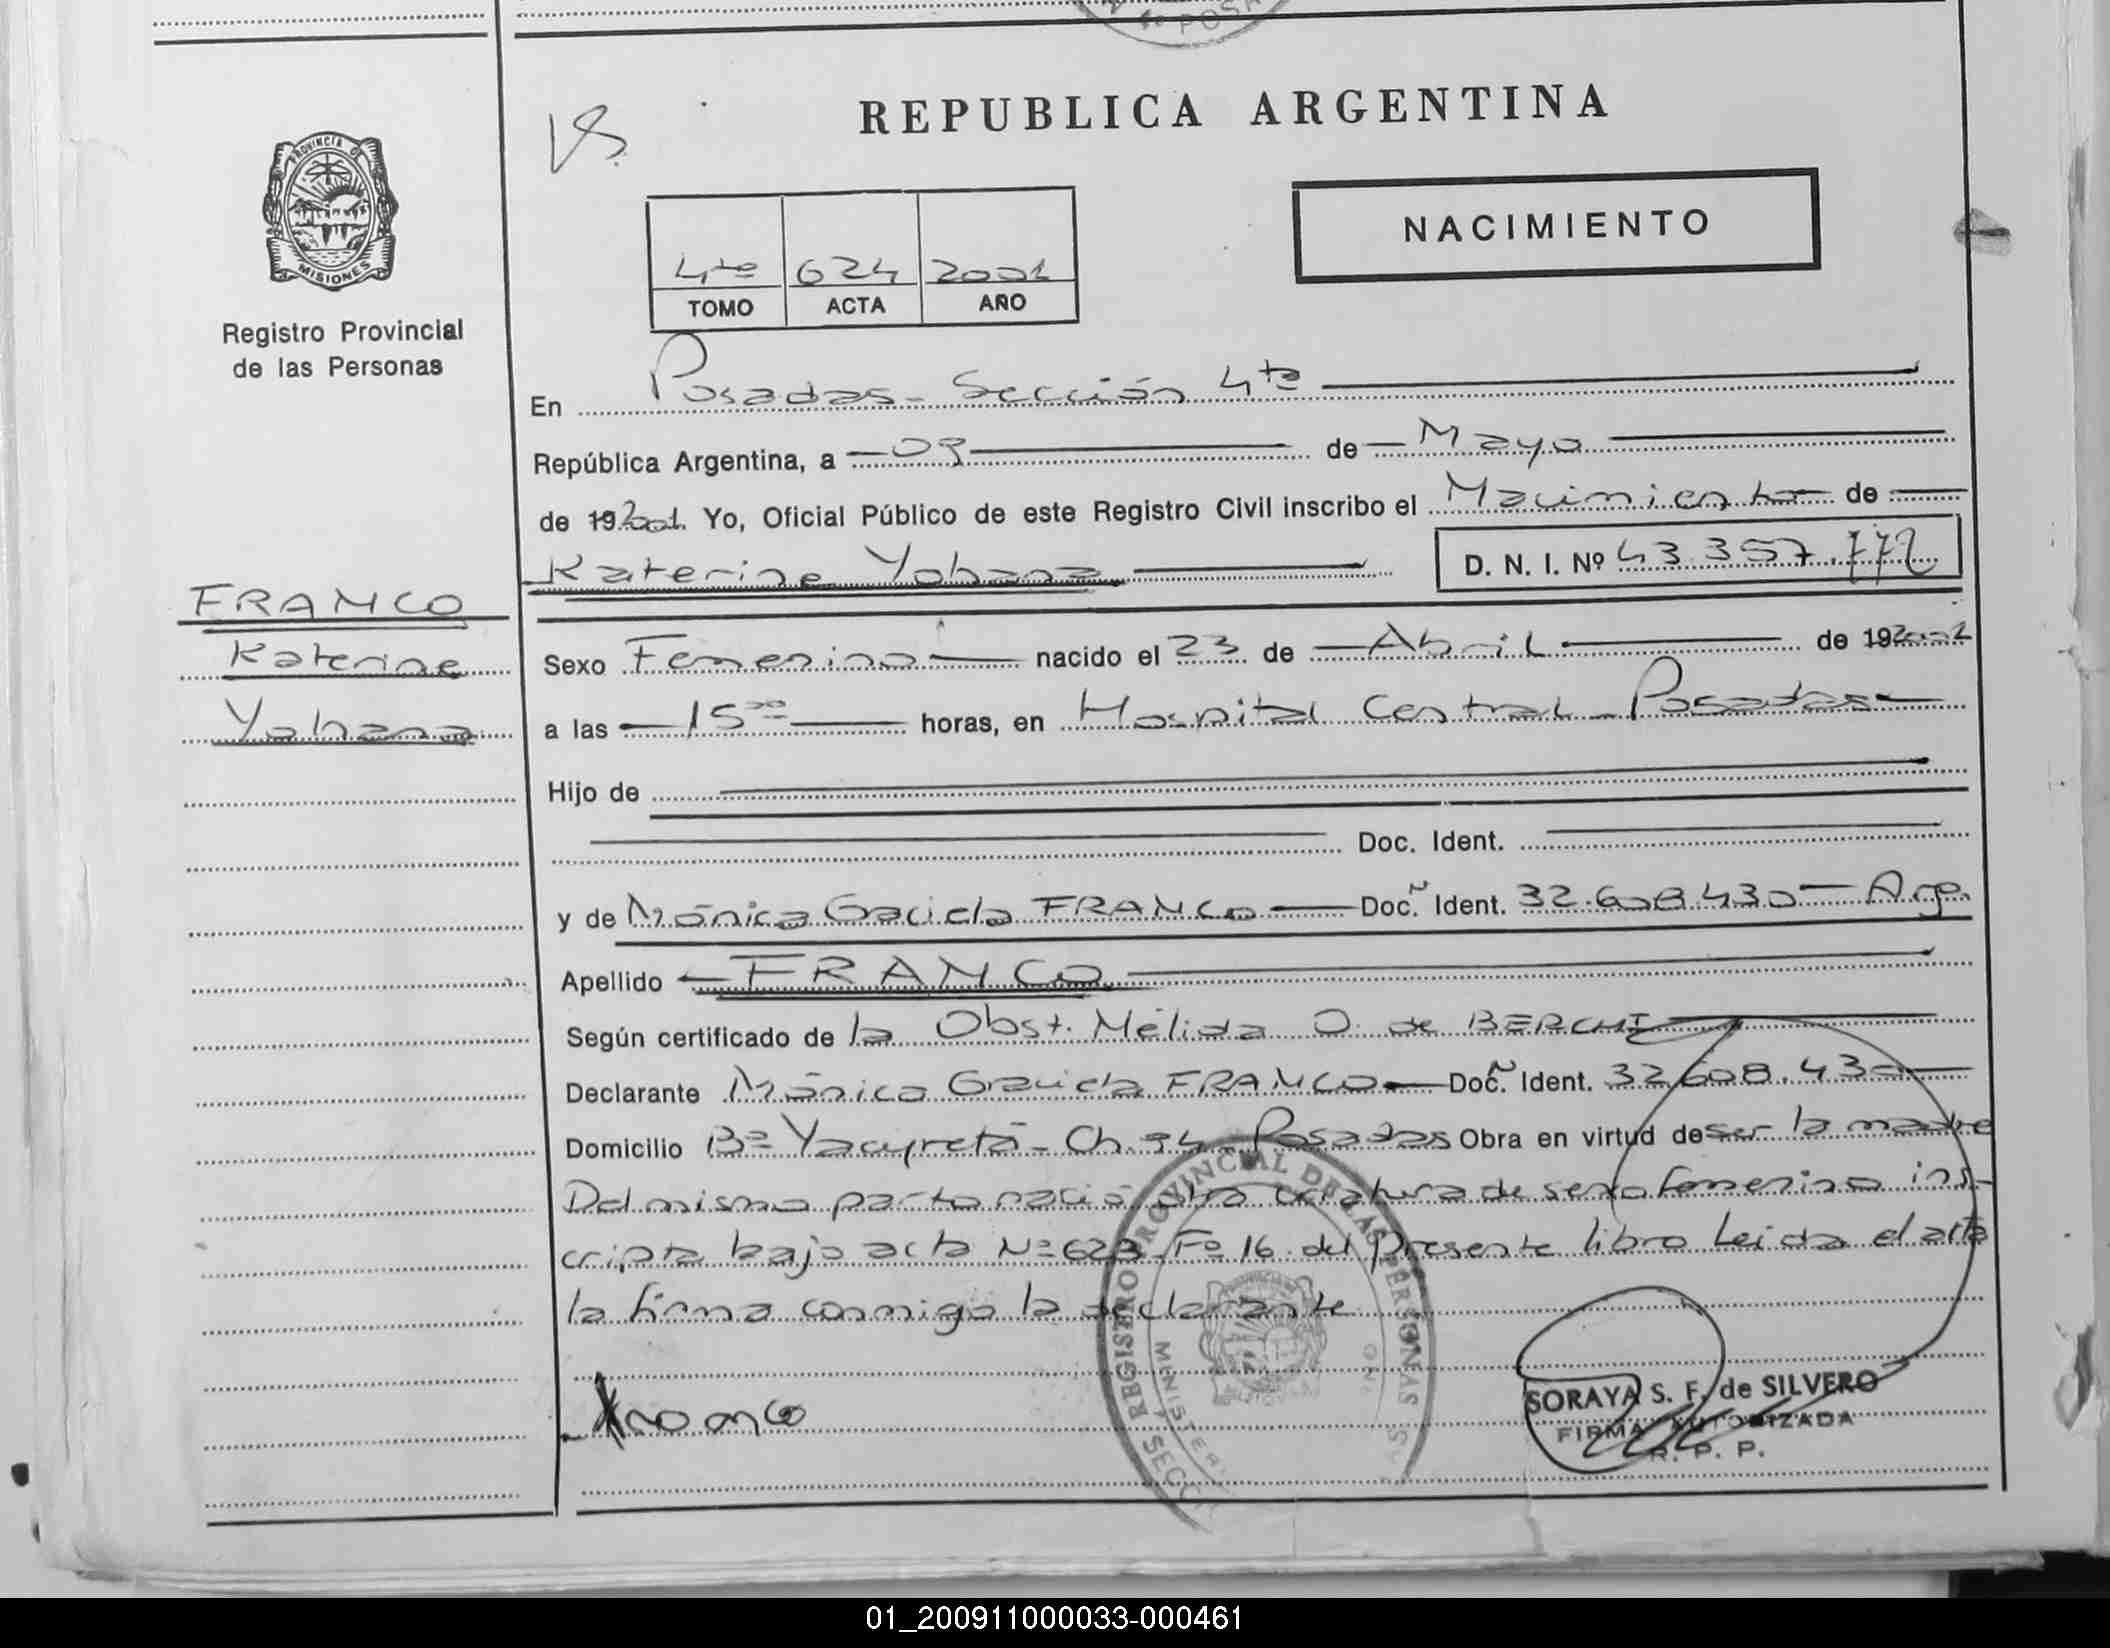 REPUBLICA ARGENTINA
PROVINCIA DE
MISIONES
Registro Provincial
de las Personas
NACIMIENTO
4to 624 2001
TOMO ACTA AÑO
En Posadas - Sección 4ta
República Argentina, a 03 de Mayo
de 192001. Yo, Oficial Público de este Registro Civil inscribo el Nacimiento de
Katerine Yohana D. N. I. Nº 43.357.772
FRANCO
Katerine
Yohana
Sexo Femenino nacido el 23 de Abril de 192001
a las 15 00 horas, en Hospital Central - Posadas
Hijo de
Doc. Ident.
y de Mónica Graciela FRANCO Doc. Ident. 32.608.430 - Arg.
Apellido FRANCO
Según certificado de la Obst. Nélida O. de BERCHI
Declarante Mónica Graciela FRANCO Doc. Ident. 32.608.430
Domicilio Bº Yacyretá - Ch. 94 Posadas Obra en virtud de ser la madre
Del mismo parto nació otra criatura de sexo femenino ins-
cripta bajo acta Nº 623 Fº 16 del presente libro Leida el acta
la firma conmigo la declarante
Franco
REGISTRO PROVINCIAL DE LAS PERSONAS
SORAYA S. F. de SILVERO
FIRMA AUTORIZADA
R. P. P.
01_200911000033-000461